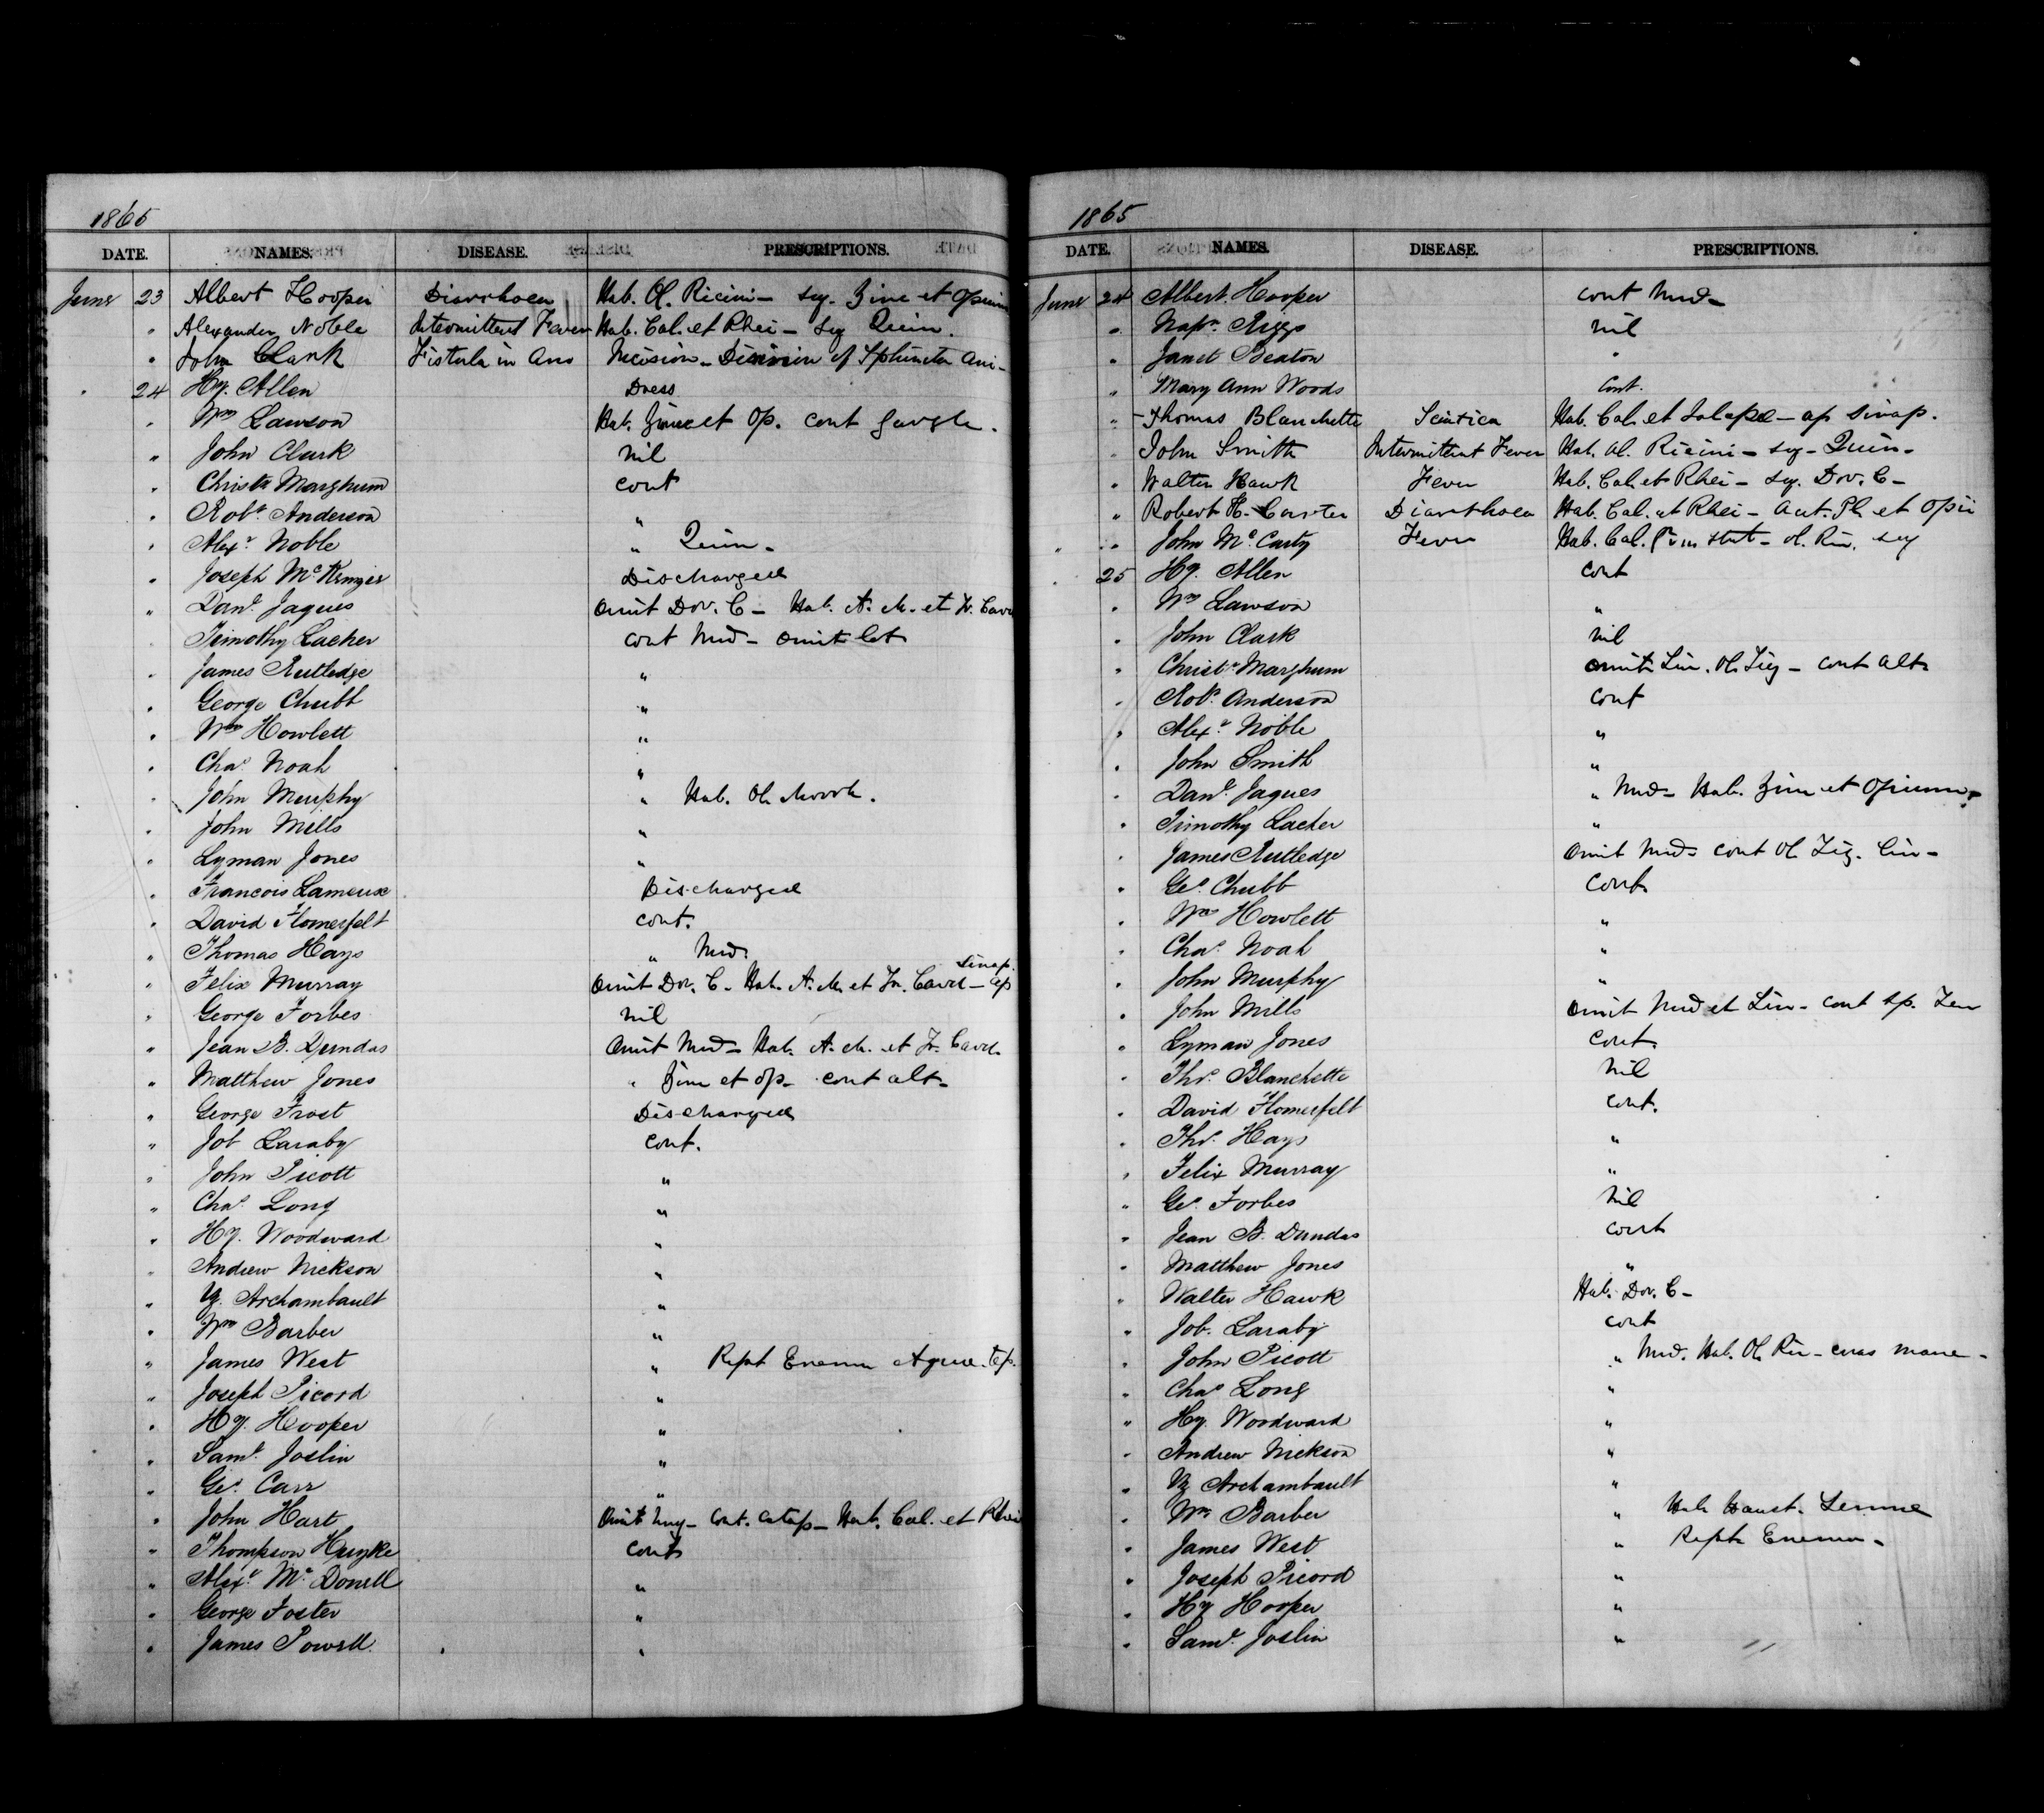 1865
DATE. NAMES. DISEASE. PRESCRIPTIONS.
June 23 Albert Hooper Diarrhoea Hab. Ol. Ricini - seq. Zinc et Opium
" Alexander Noble Intermittent Fever Hab. Cal. et Rhei - seq Quin.
" John Clark Fistula in Ano Incision - Division of Sphincter Ani -
" 24 Hy. Allen Dress
" Wm Lawson Hab. Zinc et Op. cont gargle.
" John Clark nil
" Christr Marghum cont
" Robt. Anderson "
" Alexr. Noble " Quin.
" Joseph McKenzie Discharged
" Danl. Jaques Omit Dov. C - Hab. A. M. et Tr. Card
" Timothy Lacher cont Med - omit lot
" James Rutledge "
" George Chubb "
" Wm Howlett "
" Chas. Noah "
" John Murphy " Hab. Ol. Morrh.
" John Mills "
" Lyman Jones "
" Francois Lameux Discharged
" David Homerfelt cont.
" Thomas Hays " Med.
" Felix Murray Omit Dov. C - Hab. A. M. et Tr. Card - ap Sinap.
" George Forbes nil
" Jean B. Dundas Omit Med - Hab. A. M. et Tr. Card.
" Matthew Jones " Zinc et Op - cont alt -
" George Frost Discharged
" Job Laraby cont.
" John Picott "
" Chas. Long "
" Hy. Woodward "
" Andrew Nickson "
" Archambault "
" Wm Barber "
" James West " Rept Enema Aquae Tep.
" Joseph Picord "
" Hy. Hooper "
" Saml. Joslin "
" Geo. Carr "
" John Hart Omit Ung - Cont. Catap - Hab. Cal. et Rhei
" Thompson cont
" Alexr. McDonell "
" George Foster "
" James Powell "
1865
DATE. NAMES. DISEASE. PRESCRIPTIONS.
June 24 Albert Hooper cont Med -
" Napn. Riggs nil
" Janet Beaton "
" Mary Ann Woods Cont.
" Thomas Blanchette Sciatica Hab. Cal. et Jalapae - ap Sinap.
" John Smith Intermittent Fever Hab. Ol. Ricini - seq - Quin -
" Walter Hawk Fever Hab. Cal. et Rhei - seq. Dov. C -
" Robert H. Carter Diarrhoea Hab. Cal. et Rhei - Acet. Pl. et Opii
" John McCarty Fever Hab. Cal. stat - ol. Ric. seq
" 25 Hy. Allen cont
" Wm Lawson "
" John Clark nil
" Christr. Marghum omit Lin. Ol. Tig - cont alt
" Robt. Anderson cont
" Alexr. Noble "
" John Smith "
" Danl. Jaques " Med - Hab. Zinc et Opium -
" Timothy Lacher "
" James Rutledge Omit Med - cont Ol Tig. Lin -
" Geo. Chubb Cont.
" Wm Howlett "
" Chas. Noah "
" John Murphy "
" John Mills Omit Med et Lin - cont sp.
" Lyman Jones Cont.
" Thos. Blanchette Nil
" David Homerfelt cont.
" Thos. Hays "
" Felix Murray "
" Geo. Forbes Nil
" Jean B. Dundas cont
" Matthew Jones "
" Walter Hawk Hab. Dov. C -
" Job. Laraby cont
" John Picott " Med. Hab. Ol Ric - cras mane -
" Chas Long "
" Hy. Woodward "
" Andrew Nickson "
" Archambault "
" Wm Barber " Hab Haust. Sennae
" James West " Rept Enema -
" Joseph Picord "
" Hy Hooper "
" Saml. Joslin "